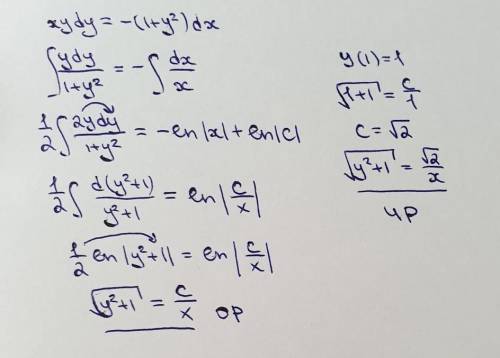 xydy = -(1+y²)dx
∫ ydy/(1+y²) = -∫ dx/x
1/2 ∫ 2ydy/(1+y²) = -ln|x| + ln|C|
1/2 ∫ d(y²+1)/(y²+1) = ln|C/x|
1/2 ln|y²+1| = ln|C/x|
√(y²+1) = C/x ОР
y(1)=1
√(1+1) = C/1
C = √2
√(y²+1) = √2/x
ЧР